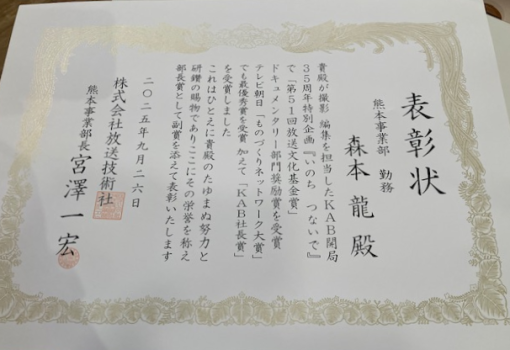 表彰状
熊本事業部 勤務
森本 龍 殿
貴殿が撮影 編集を担当したKAB開局
35周年特別企画『いのち つないで』
で「第51回放送文化基金賞」
ドキュメンタリー部門奨励賞を受賞
テレビ朝日「ものづくりネットワーク大賞」
でも最優秀賞を受賞 加えて「KAB社長賞」
を受賞しました
これはひとえに貴殿のたゆまぬ努力と
研鑽の賜物でありここにその栄誉を称え
部長賞として副賞を添えて表彰いたします
二〇二五年九月二六日
株式会社放送技術社
熊本事業部長 宮澤一宏